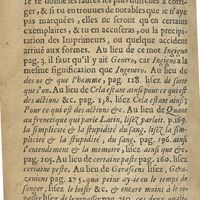 Je te donne les fautes les plus difficiles à corri-
ger, & si tu en trouves de notables que je n'aye
pas marquées, elles ne seront qu'en certains
exemplaires, & tu en accuseras, ou la precipi-
tation des Imprimeurs, ou quelque accident
arrivé aux formes. Au lieu de ce mot Ingegno
pag. 3. il faut qu'il y ait Genero, car Ingegno a la
mesme signification que Ingenero. Au lieu de
des os & que l'homme, pag. 128. lisez de sorte
que l'on. Au lieu de Cela estant ainsi pour ce qui est
des actions &c. pag. 138. lisez Cela estant ainsi?
Pour ce qui est des actions &c. Au lieu de Quant
au frenetique qui parle Latin, lisez parloit. p. 169.
la simplicité & la stupidité du sang, lisez la sim-
plicité & la stupidité, du sang. pag. 196. ainsi
l'entendement & la memoire, lisez ainsi que,
pag. 105. Au lieu de certaine paste pag. 160. lisez
certaine peste. Au lieu de Gerasiens lisez, Gera-
zeens pag. 27
songer, lisez le loisir &c. & encore moins à le re-